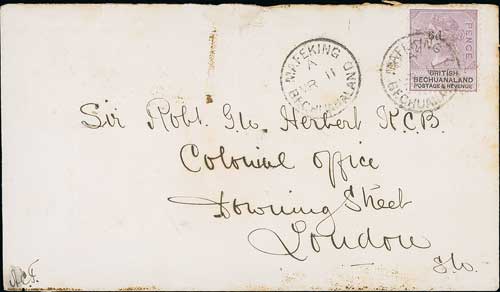 MAFEKING
A
MR 11
BECHUANALAND
MAFEKING
BECHUANALAND
6d.
PENCE
BRITISH
BECHUANALAND
POSTAGE & REVENUE
Sir Robt. G.W. Herbert K.C.B.
Colonial Office
Downing Street
London
S.W.